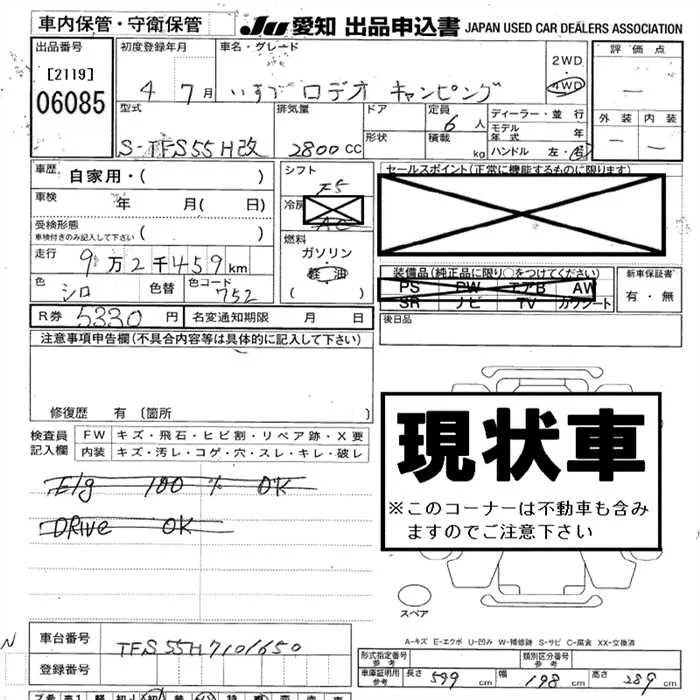 車内保管・守衛保管
JU 愛知 出品申込書 JAPAN USED CAR DEALERS ASSOCIATION
出品番号
[2119]
06085
初度登録年月
4 7月
車名・グレード
いすゞ ロデオ キャンピング
2WD
・
4WD
評価点
ー
外装 内装
ー ー
型式
S-TFS55H改
排気量
2800CC
ドア
形状
定員
6人
積載
kg
ディーラー・並行
モデル年式 年
ハンドル 左・右
車歴
自家用・( )
車検 年 月( 日)
受検形態
車検付きのみ記入して下さい ( )
走行 9万2千459km
色 シロ 色替 色コード 752
シフト
F5
冷房
AC
燃料
ガソリン
軽油
( )
セールスポイント(正常に機能するものに限ります)
装備品(純正品に限り○をつけてください)
PS PW エアB AW
SR ナビ TV カワシート
新車保証書
有・無
R券 5330円 名変通知期限 月 日
後日品
注意事項申告欄(不具合内容等は具体的に記入して下さい)
修復歴 有〔箇所 〕
検査員
記入欄
FW キズ・飛石・ヒビ割・リペア跡・X要
内装 キズ・汚レ・コゲ・穴・スレ・キレ・破レ
E/g 100% OK
DRive OK
現状車
※このコーナーは不動車も含み
ますのでご注意下さい
スペア
A-キズ E-エクボ U-凹み W-補修跡 S-サビ C-腐食 XX-交換済
N
車台番号 TFS55H7101650
登録番号
形式指定番号
参考
類別区分番号
参考
車庫証明用
参考
長さ 599cm 幅 198cm 高さ 289cm